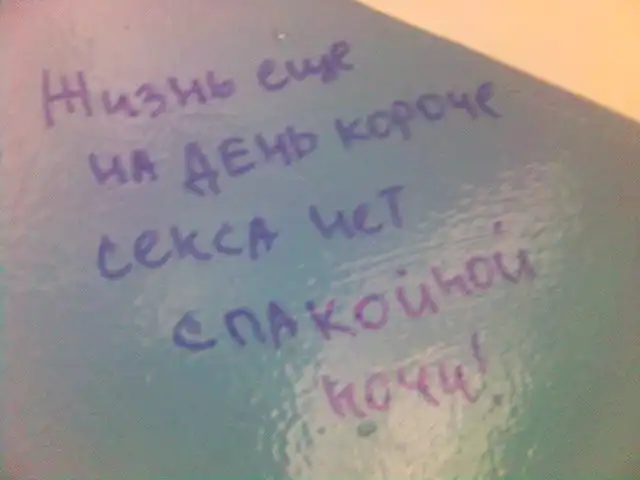 Жизнь еще
на ДЕНЬ короче
секса нет
спакойной
ночи!